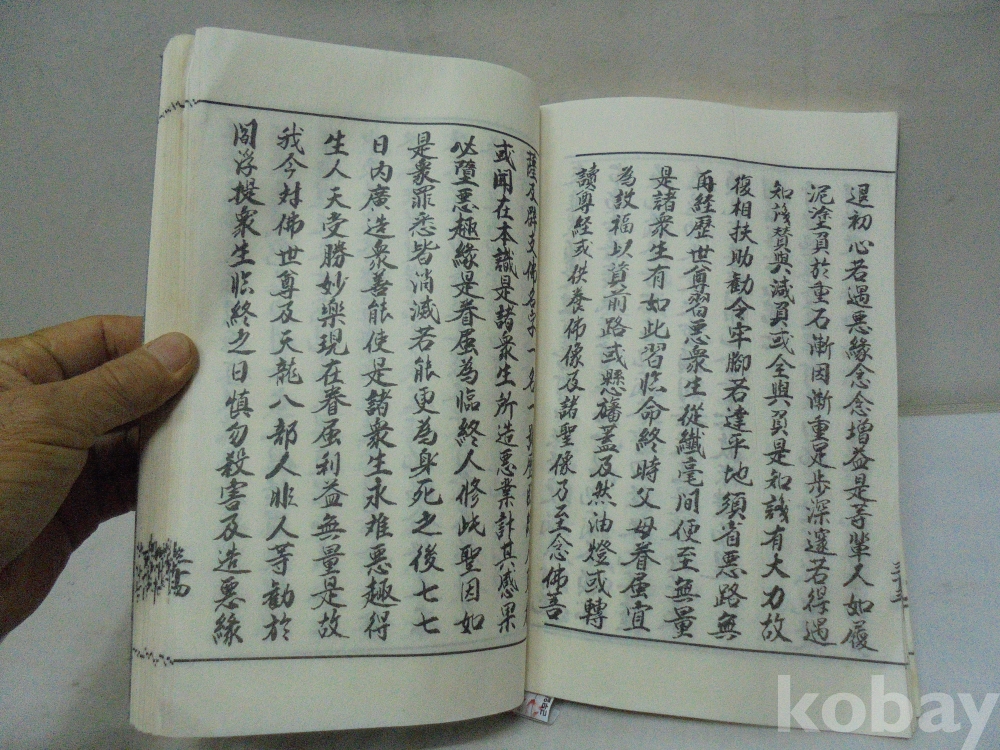 退初心若遇惡緣念念增益是等輩人如履
泥塗負於重石漸困漸重足步深邃若得遇
知識替與減負或全與負是知識有大力故
復相扶助勸令牢腳若達平地須省惡路無
再經歷世尊習惡衆生從纖毫間便至無量
是諸衆生有如此習臨命終時父母眷屬宜
為設福以資前路或懸旛蓋及然油燈或轉
讀尊經或供養佛像及諸聖像乃至念佛菩
薩及辟支佛名字一名一
或聞在本識是諸衆生所造惡業計其感果
必墮惡趣緣是眷屬為臨終人修此聖因如
是衆罪悉皆消滅若能更為身死之後七七
日內廣造衆善能使是諸衆生永離惡趣得
生人天受勝妙樂現在眷屬利益無量是故
我今對佛世尊及天龍八部人非人等勸於
閻浮提衆生臨終之日慎勿殺害及造惡緣
kobay